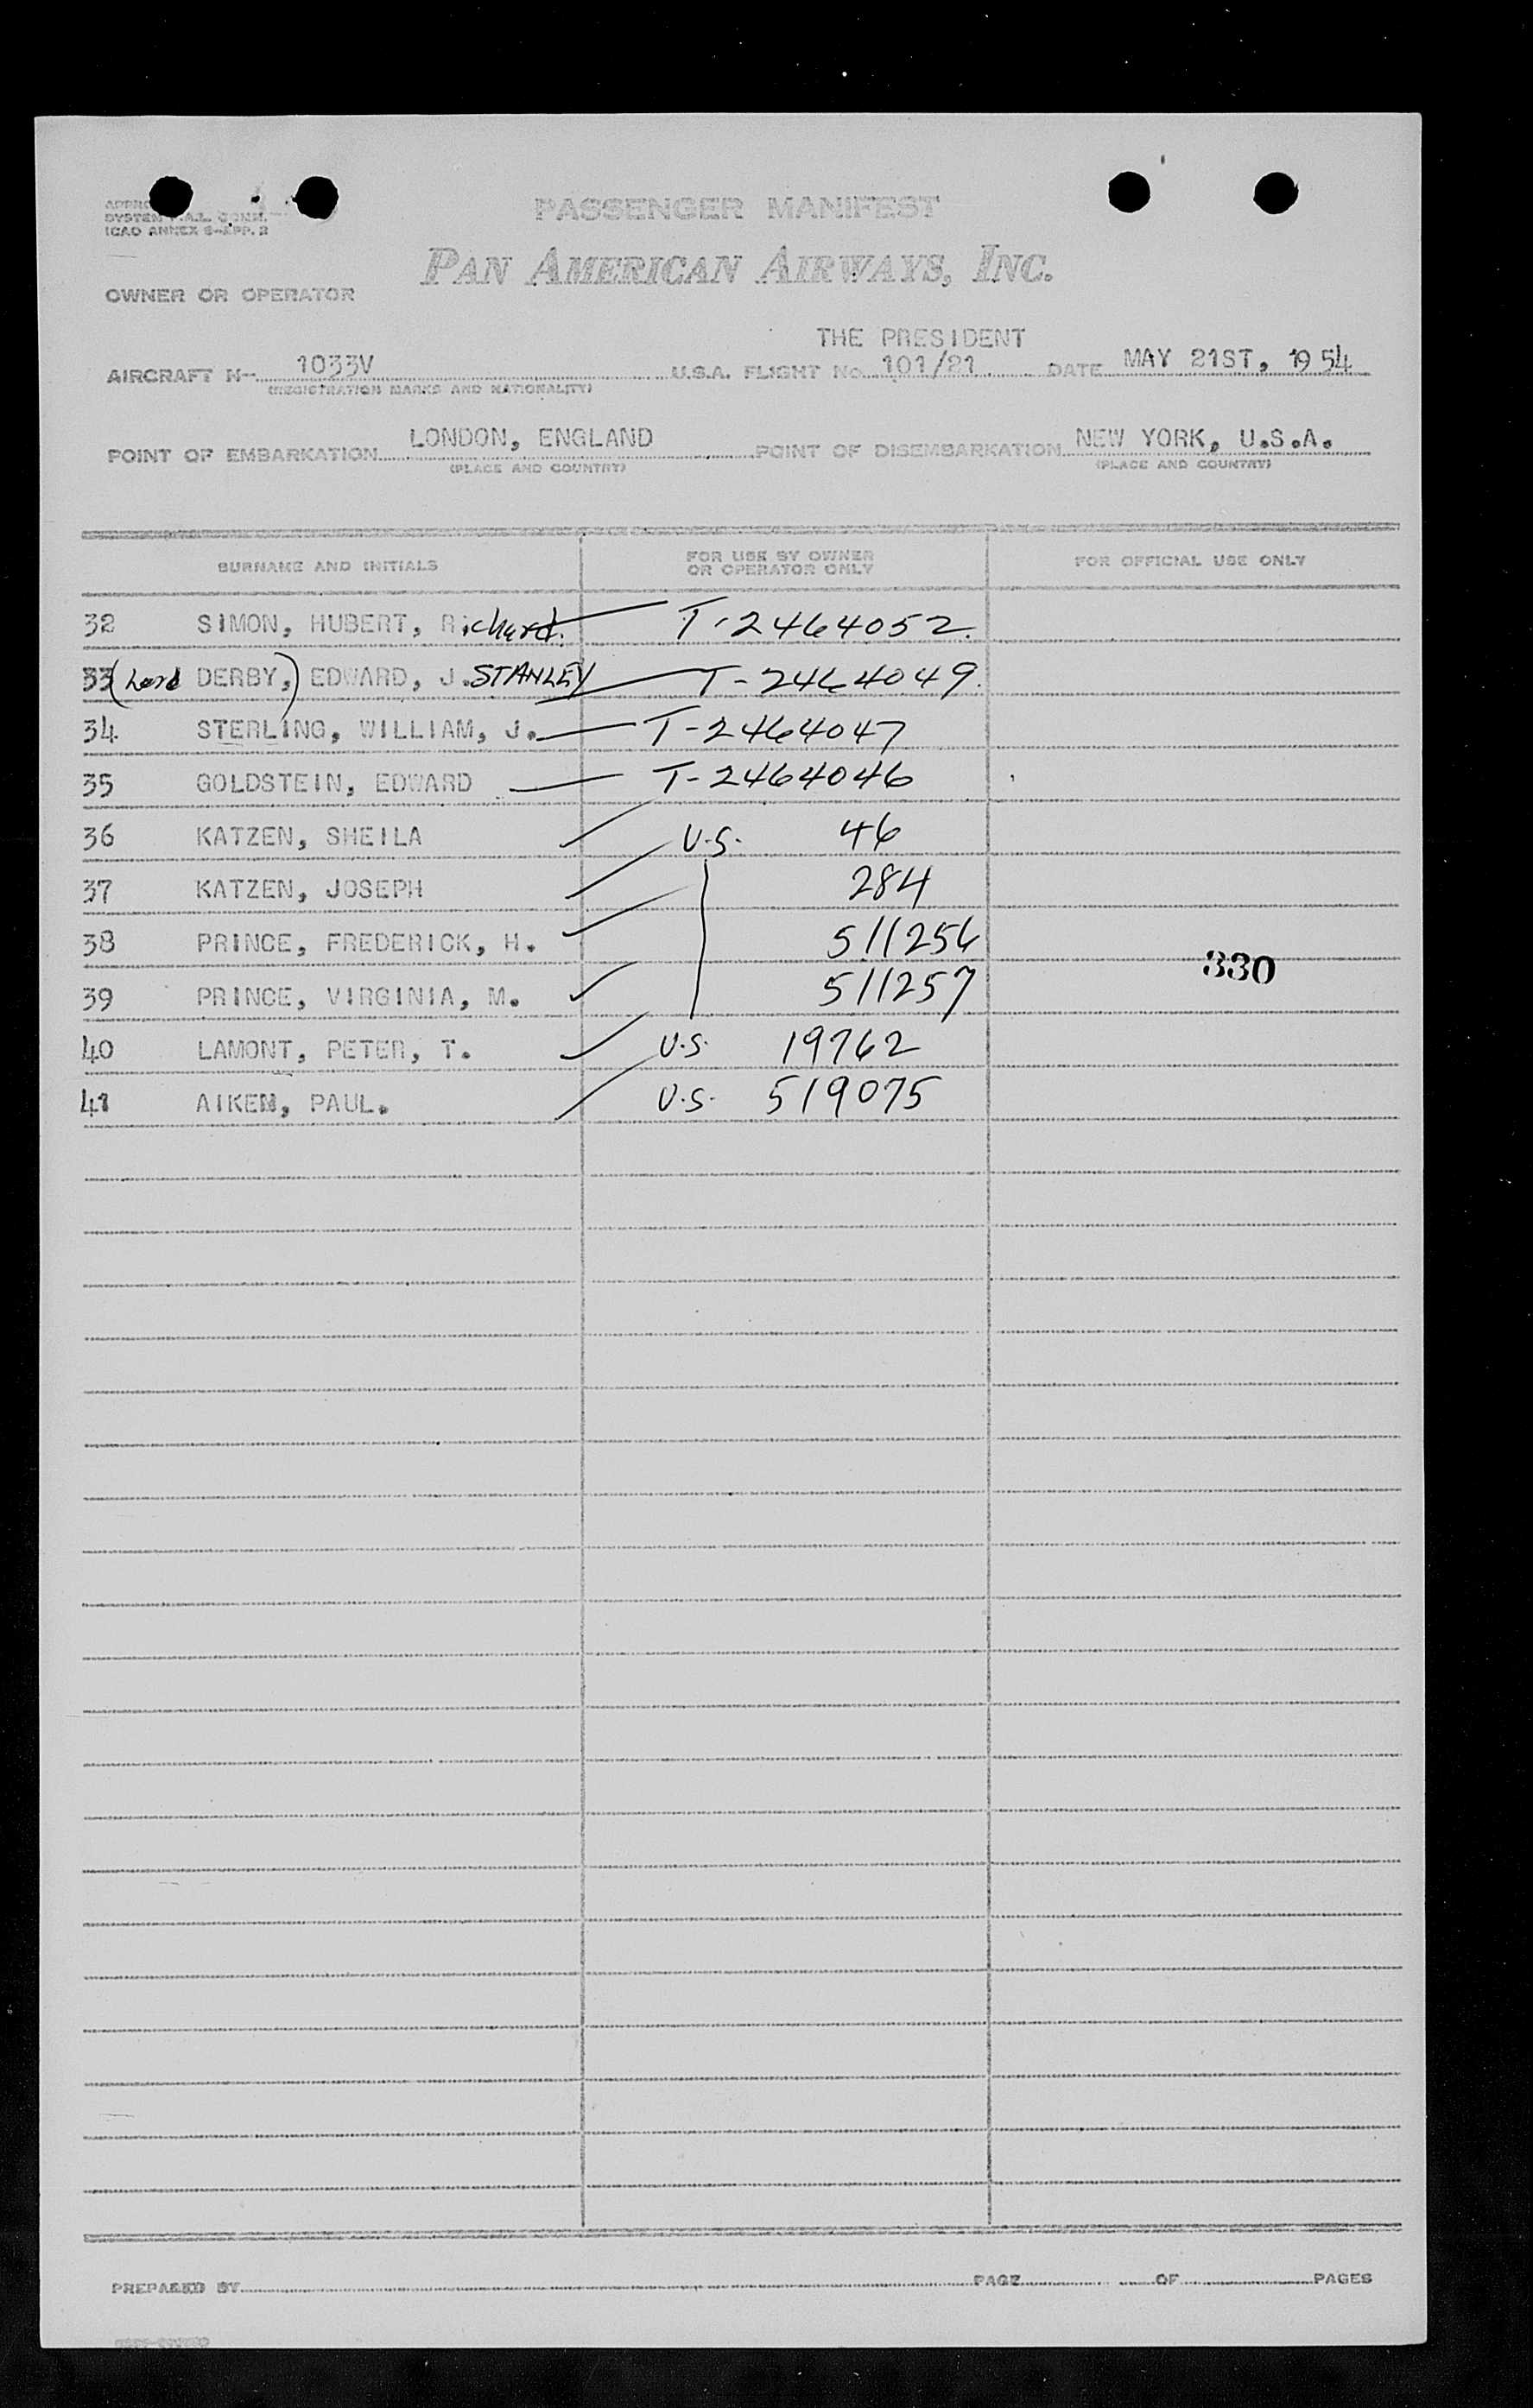 PASSENGER MANIFEST
ICAO ANNEX 9-APP. 2
PAN AMERICAN AIRWAYS, INC.
OWNER OR OPERATOR
THE PRESIDENT
AIRCRAFT N- 1033V U.S.A. FLIGHT No. 101/21 DATE MAY 21ST, 1954
(REGISTRATION MARKS AND NATIONALITY)
POINT OF EMBARKATION LONDON, ENGLAND POINT OF DISEMBARKATION NEW YORK, U.S.A.
(PLACE AND COUNTRY) (PLACE AND COUNTRY)
SURNAME AND INITIALS FOR USE BY OWNER OR OPERATOR ONLY FOR OFFICIAL USE ONLY
32 SIMON, HUBERT, Richard. T-2464052.
33 (Lord DERBY,) EDWARD, J. STANLEY T-2464049.
34 STERLING, WILLIAM, J. T-2464047
35 GOLDSTEIN, EDWARD T-2464046
36 KATZEN, SHEILA U.S. 46
37 KATZEN, JOSEPH 284
38 PRINCE, FREDERICK, H. 511256
330
39 PRINCE, VIRGINIA, M. 511257
40 LAMONT, PETER, T. U.S. 19762
41 AIKEN, PAUL. U.S. 519075
PREPARED BY PAGE OF PAGES